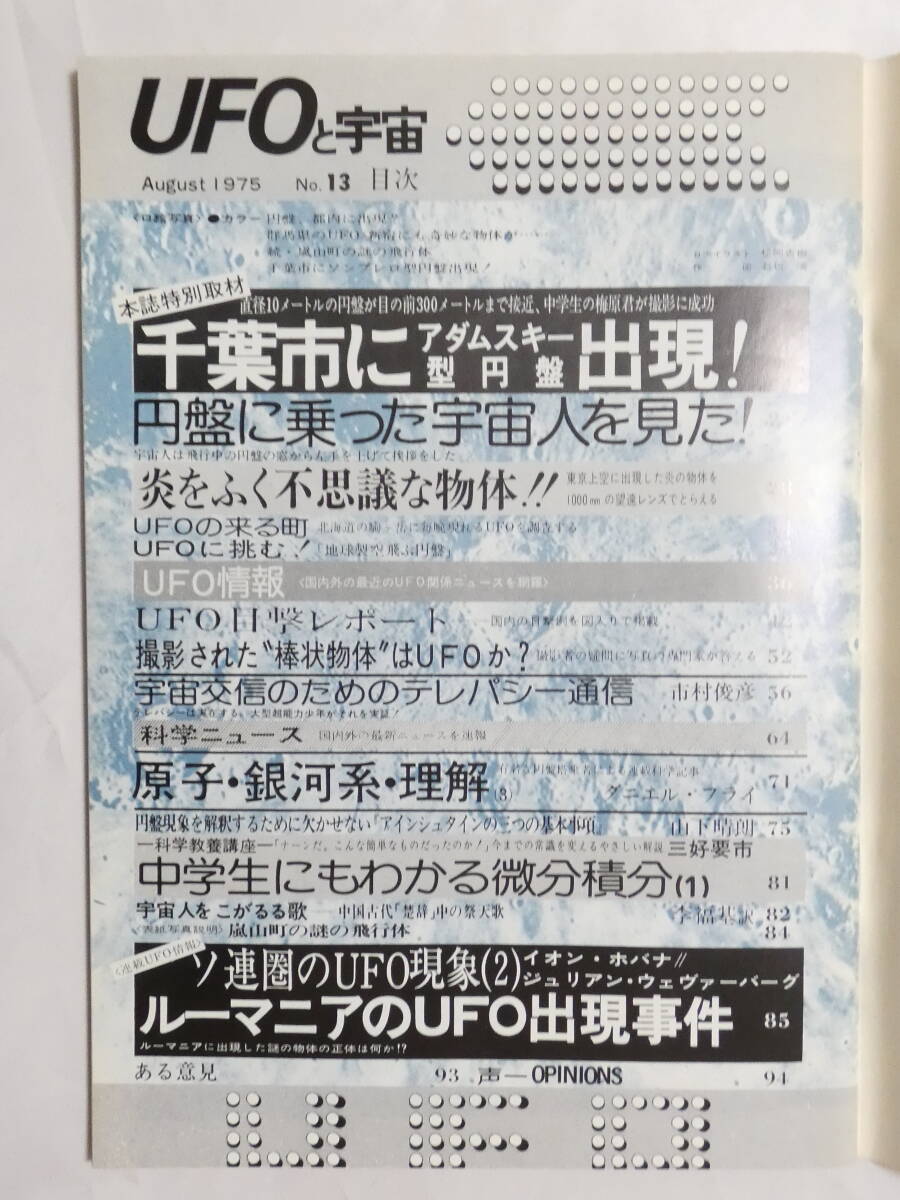 UFOと宇宙
August 1975 No.13 目次
〈口絵写真〉●カラー 円盤、都内に出現?
群馬県のUFO 新宿にも奇妙な物体が……
続・嵐山町の謎の飛行体
千葉市にソンブレロ型円盤出現!
本誌特別取材
直径10メートルの円盤が目の前300メートルまで接近、中学生の梅原君が撮影に成功
千葉市にアダムスキー型円盤出現!
円盤に乗った宇宙人を見た!
宇宙人は飛行中の円盤の窓から右手を上げて挨拶をした。
炎をふく不思議な物体!! 東京上空に出現した炎の物体を
1000mmの望遠レンズでとらえる
UFOの来る町 北海道の駒ヶ岳に毎晩現れるUFOを調査する
UFOに挑む!「地球製空飛ぶ円盤」
UFO情報〈国内外の最近のUFO関係ニュースを網羅〉 36
UFO目撃レポート 国内の目撃例を図入りで掲載
撮影された“棒状物体”はUFOか? 撮影者の疑問に写真の専門家が答える 52
宇宙交信のためのテレパシー通信 市村俊彦 56
テレパシーは実在する。大型超能力少年がそれを実証!
科学ニュース 国内外の最新ニュースを速報 64
原子・銀河系・理解(3) 有名な円盤搭乗者による連載科学記事 ダニエル・フライ 71
円盤現象を解釈するために欠かせない「アインシュタインの三つの基本事項」 山下晴朗 75
—科学教養講座—「ナーンだ。こんな簡単なものだったのか!」今までの常識を変えるやさしい解説 三好要市
中学生にもわかる微分積分(1) 81
宇宙人をこがるる歌——中国古代「楚辞」中の祭天歌 李福基訳 82
〈表紙写真説明〉嵐山町の謎の飛行体 84
〈連載UFO情報〉
ソ連圏のUFO現象(2) イオン・ホバナ//
ジュリアン・ウェヴァーバーグ
ルーマニアのUFO出現事件 85
ルーマニアに出現した謎の物体の正体は何か!?
ある意見 93 声—OPINIONS 94
UFO